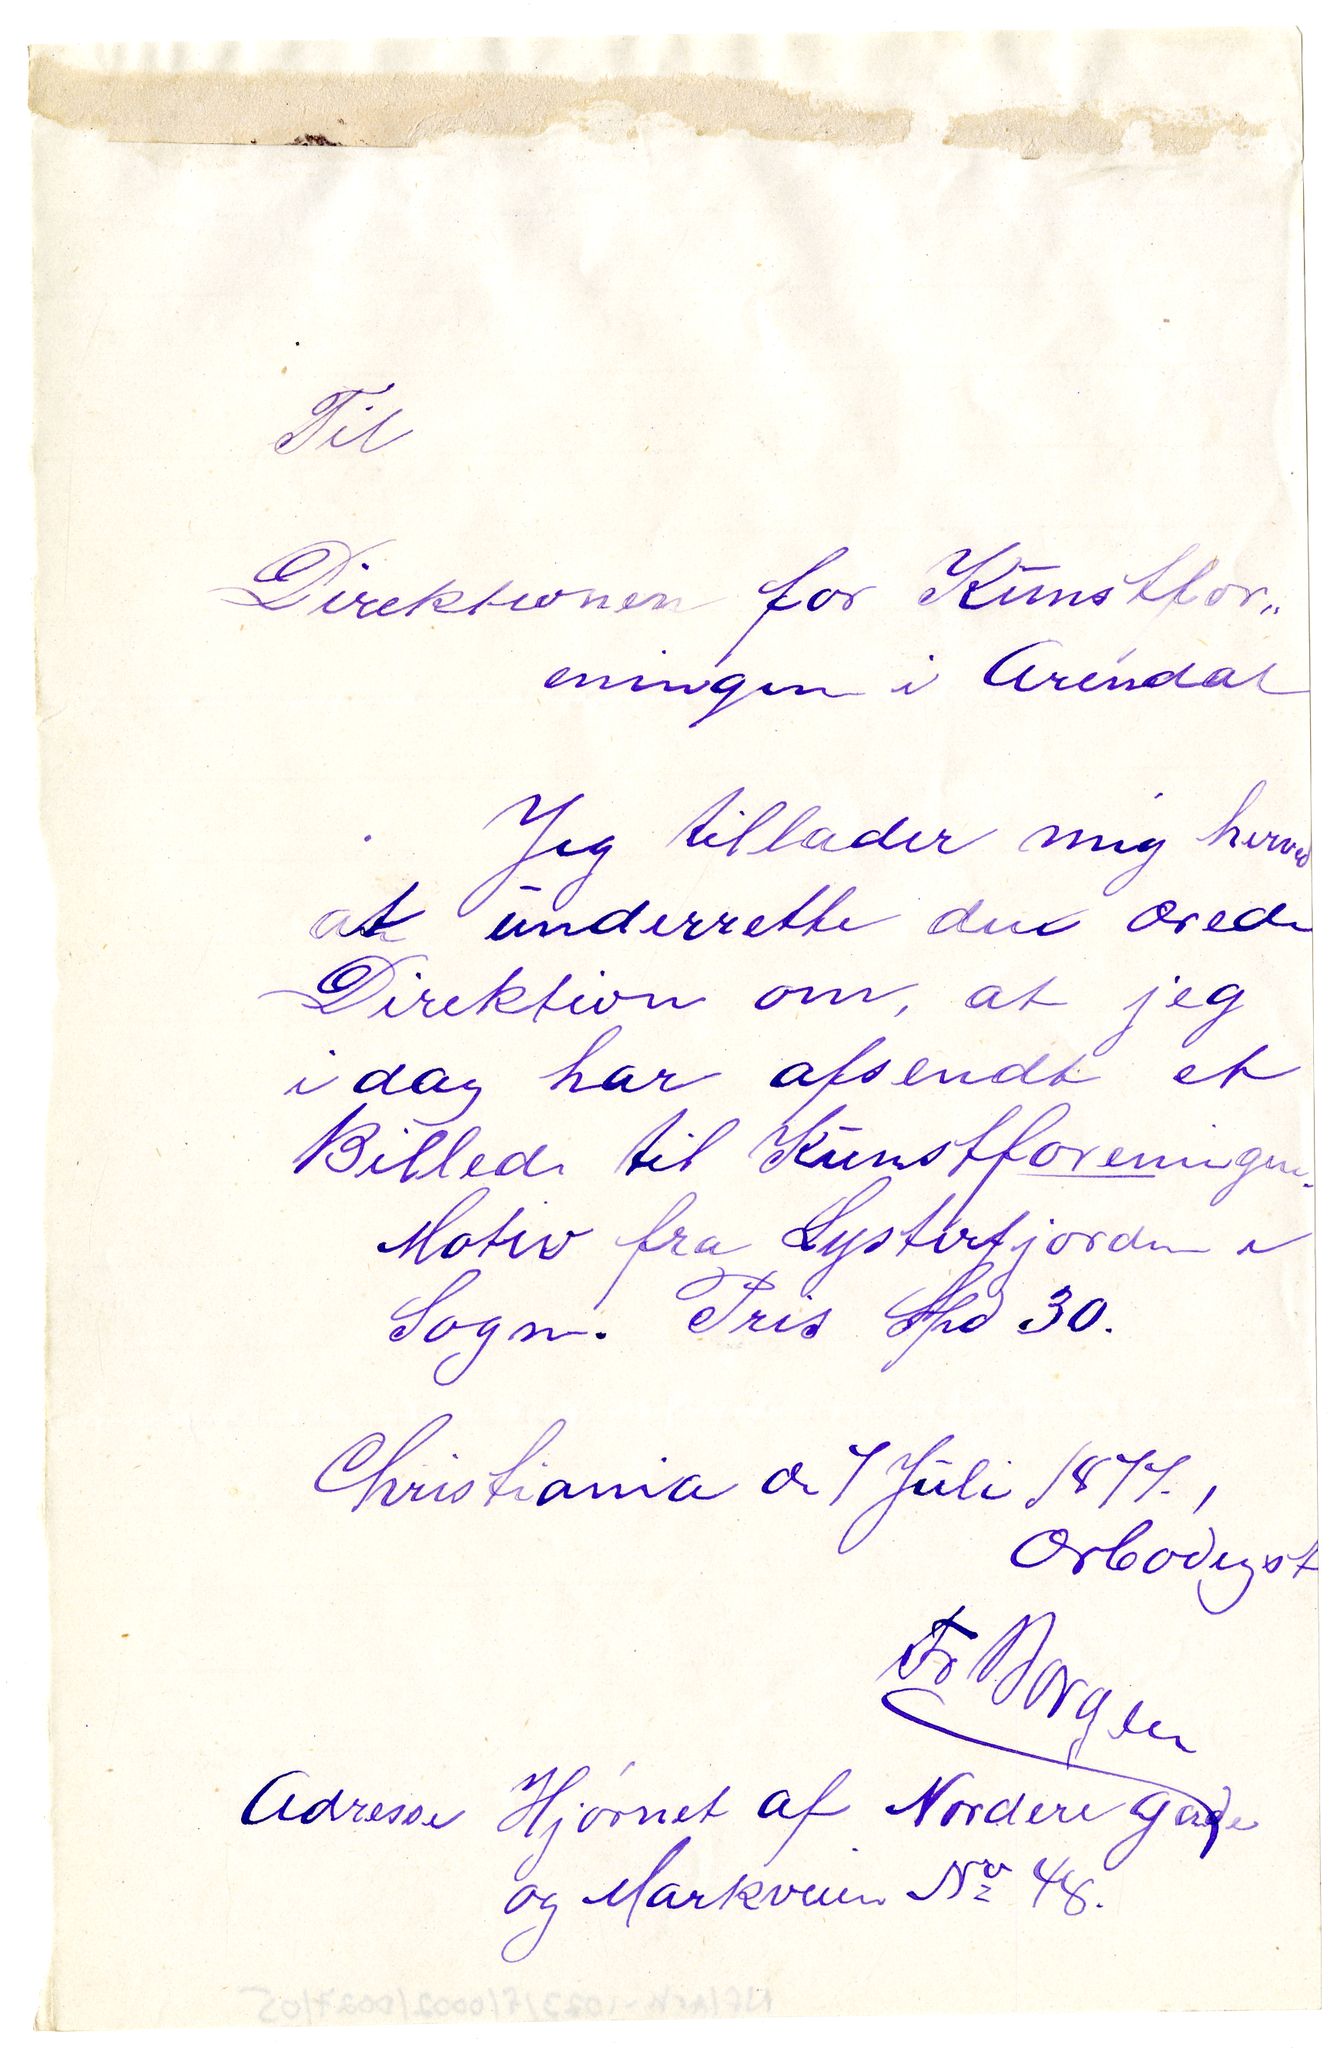 Til
Direktionen for Kunstfor„
eningen i Arendal
Jeg tillader mig herved
at underrette den ærede
Direktion om, at jeg
idag har afsendt et
Billede til Kunstforeningen.
Motiv fra Lysterfjorden i
Sogn. Pris Spd 30.
Christiania d 7 Juli 1877.,
Ærbødigst
Fr Borgen
Adresse Hjørnet af Nordre Gade
og Markveien No 48.